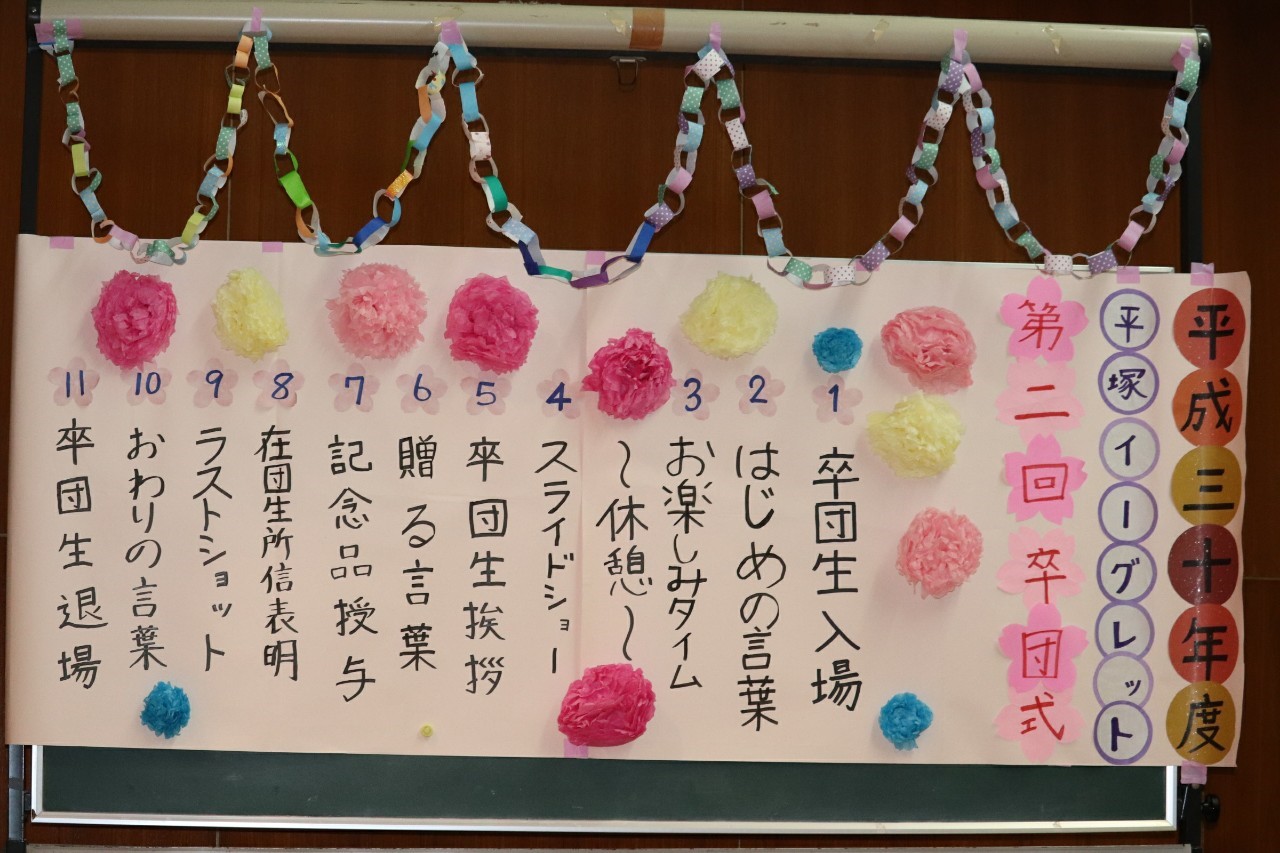 平成三十年度
平塚イーグレット
第二回卒団式
1 卒団生入場
2 はじめの言葉
3 お楽しみタイム
～休憩～
4 スライドショー
5 卒団生挨拶
6 贈る言葉
7 記念品授与
8 在団生所信表明
9 ラストショット
10 おわりの言葉
11 卒団生退場